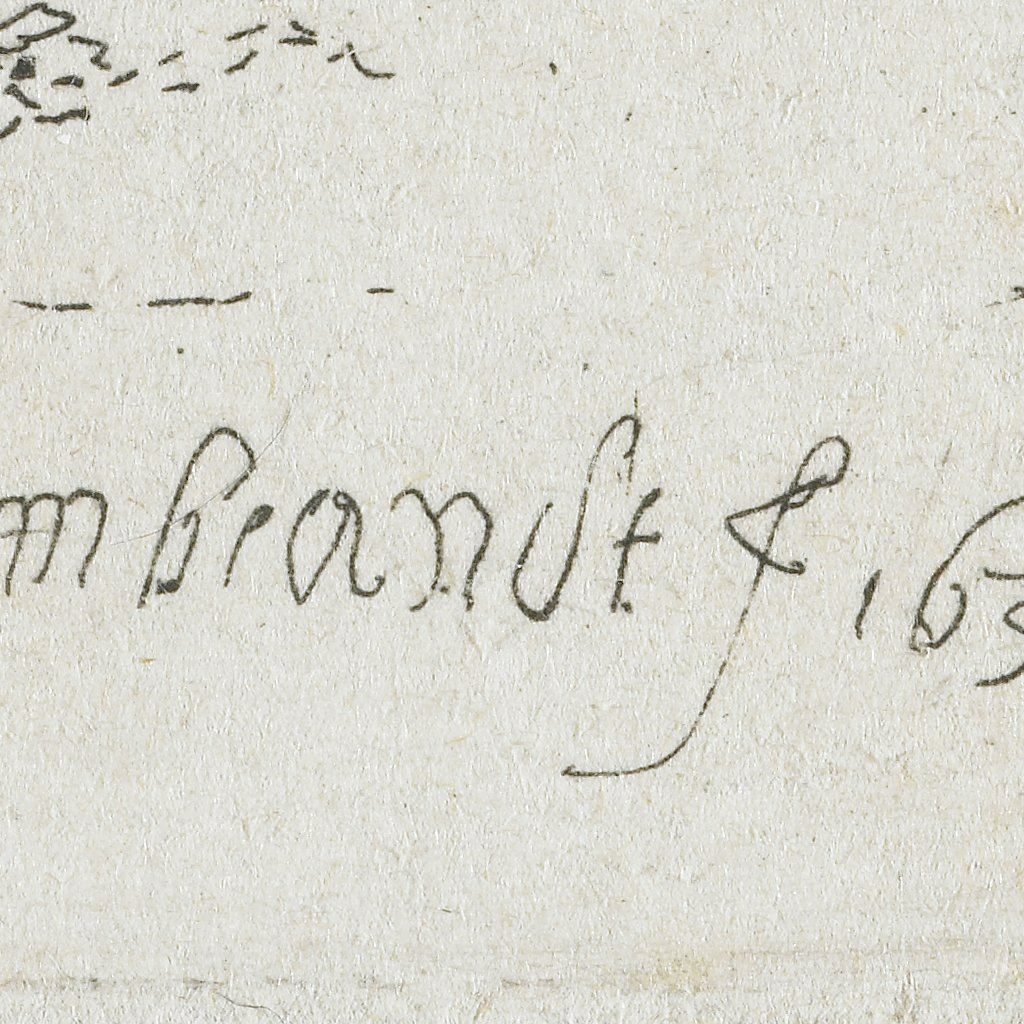 mbrandt f. 163